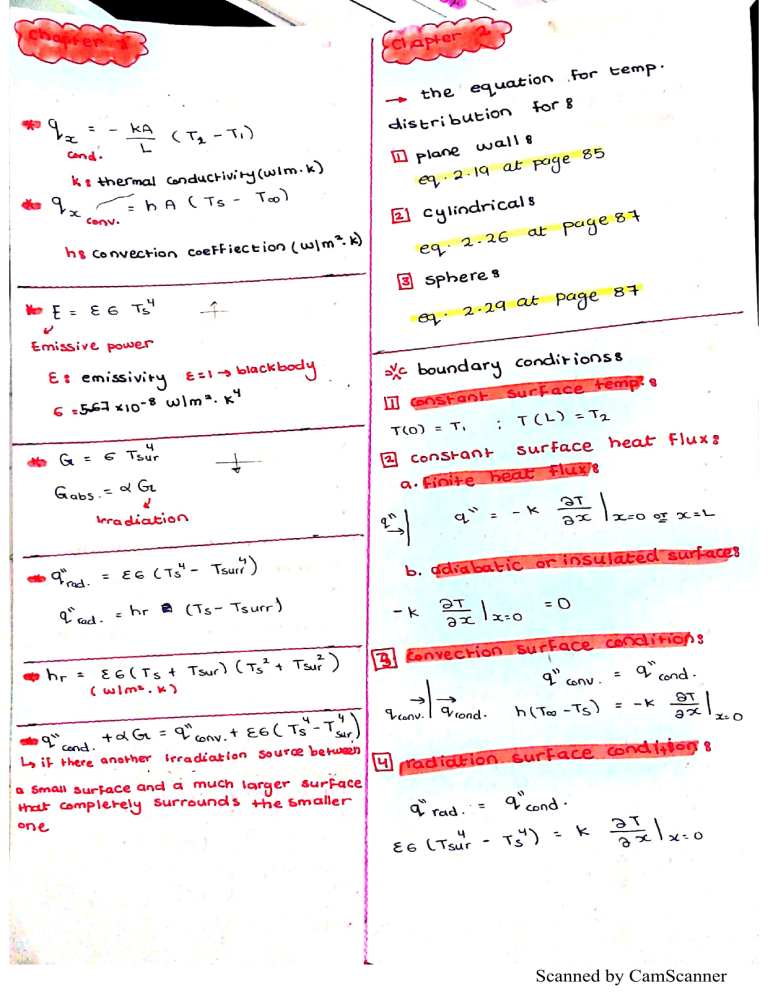 Chapter 1
* q_x = - kA/L (T₂ - T₁)
cond.
k: thermal conductivity (w/m.k)
* q_x = h A (Ts - T∞)
conv.
h: convection coeffiection (w/m².k)
* E = ε σ Ts⁴
Emissive power
ε: emissivity ε=1 → blackbody
σ = 5.67 ×10⁻⁸ w/m².k⁴
* G = σ Tsur⁴
G abs. = α G
Irradiation
q"rad. = εσ (Ts⁴ - Tsurr⁴)
q"rad. = hr (Ts - Tsurr)
hr = εσ (Ts + Tsur) (Ts² + Tsur²)
(w/m².k)
q"cond. + αG = q"conv. + εσ (Ts⁴ - Tsur⁴)
↳ if there another Irradiation source between
a small surface and a much larger surface
that completely surrounds the smaller
one
Chapter 2
→ the equation for temp.
distribution for:
1 plane wall:
eq. 2.19 at page 85
2 cylindrical:
eq. 2.26 at page 87
3 sphere:
eq. 2.29 at page 87
* boundary conditions:
1 constant surface temp.:
T(0) = T₁ ; T(L) = T₂
2 constant surface heat flux:
a. finite heat flux:
q" → | q" = -k ∂T/∂x |x=0 or x=L
b. adiabatic or insulated surface:
-k ∂T/∂x |x=0 = 0
3 convection surface condition:
q"conv. = q"cond.
qconv. → | → qcond. h(T∞ - Ts) = -k ∂T/∂x |x=0
4 radiation surface condition:
q"rad. = q"cond.
εσ (Tsur⁴ - Ts⁴) = k ∂T/∂x |x=0
Scanned by CamScanner